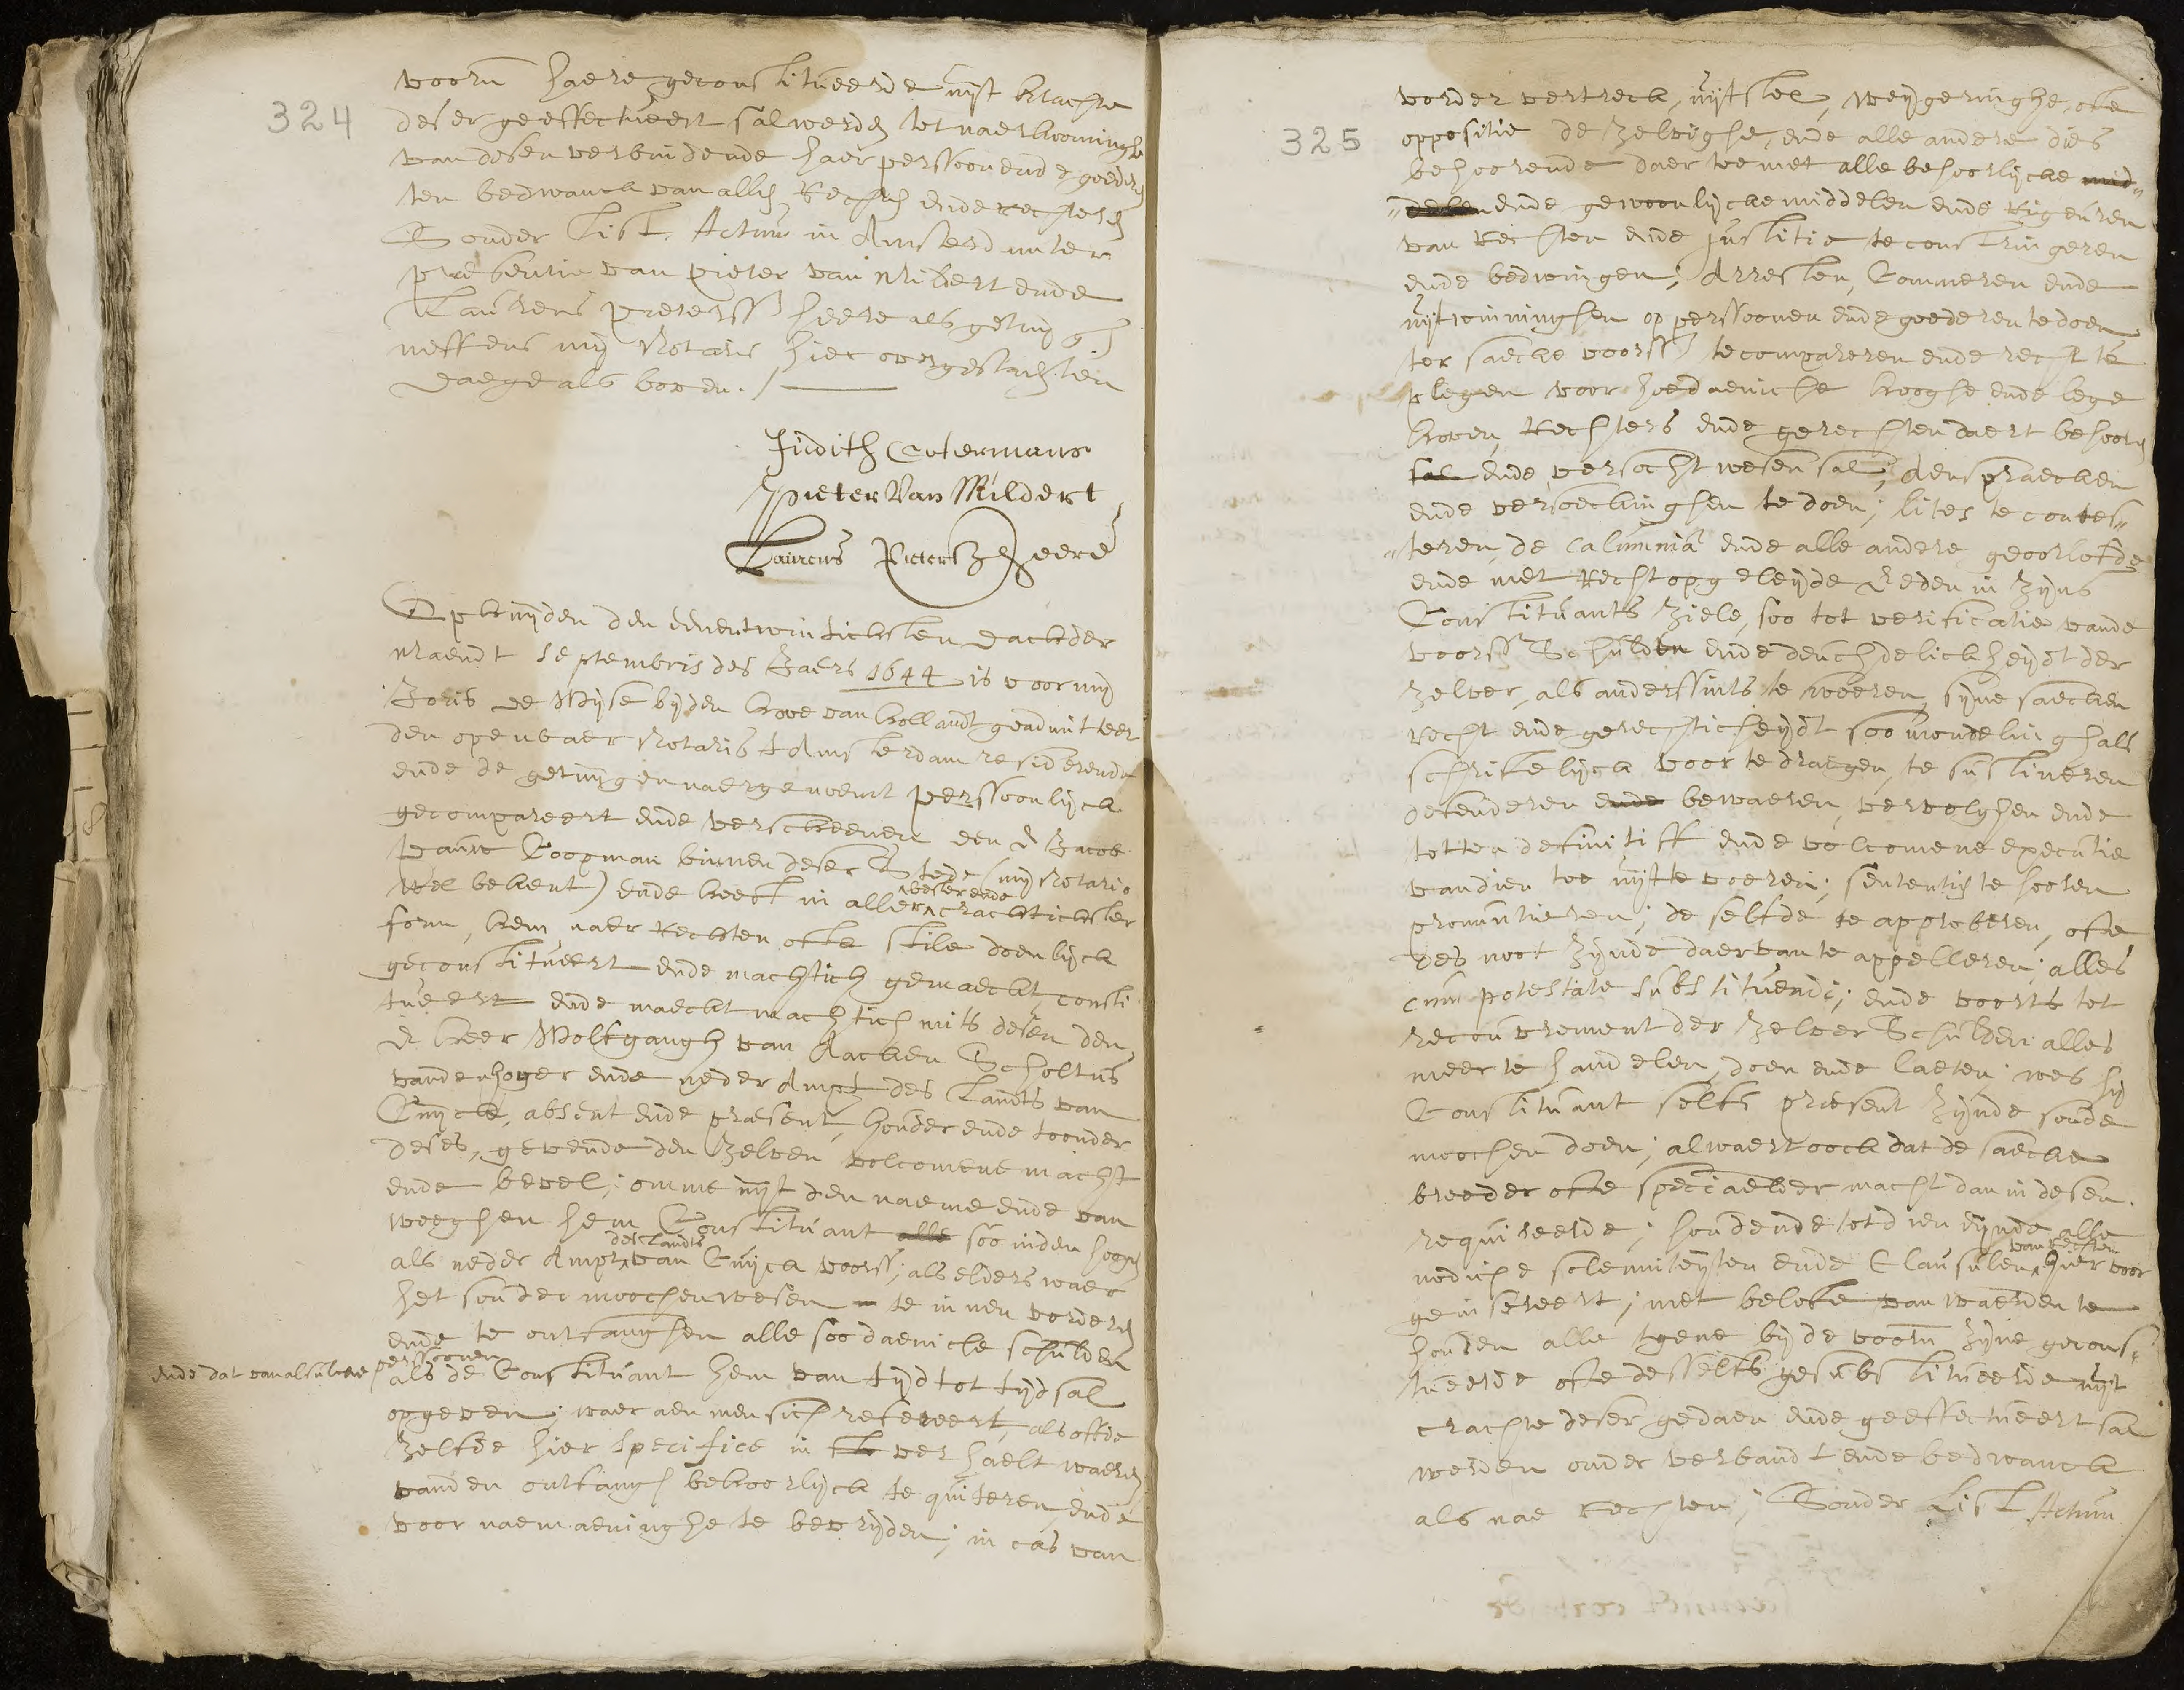 324
voorn haere geconstitueerde uijt krachte
deser geeffectueert sal werden tot naerkominghe
van desen verbindende haer persoon ende goederen
ten bedwanck van allen Rechten ende rechteren
Sonder List. Actum in Amsterd unter
presentie van pieter van Mildert ende
Laurens pieterss heere als getuijgen
neffens mij Notaris hier over gestaen ten
daege als boven. /
Judith Cotermans
Pieter Van Mildert
Laurens Pietersz Heere
Op huijden den eenentwintichsten dach der
Maendt Septembris des Jaers 1644 is voor mij
Joris de Wijse bijden hove van hollandt geadmitteert
den openbaer Notaris t Amsterdam residerende
ende de getuijgen naergenoemt persoonlijck
gecompareert ende verscheenen den E Jacob
pauw Coopman binnen deser Stede (mij Notario
wel bekent) ende heeft in aller bester ende crachtichster
form, hem naer Rechten ofte stile doenlijck
geconstitueert ende machtich gemaeckt consti
tueert ende maeckt machtich mits desen den
E heer Wolfgangh van Aacken Scholtus
vanden hoger ende neder Ampt des Landts van
Cuijck, absent ende præsent, houder ende toonder
deses, gevende den zelven volcomene macht
ende bevel; omme uijt den naeme ende van
weeghen hem Constituant alle soo inden hoogen
als neder Ampt des Landts van Cuijck voorss; als elders waer
het soude moochen wesen te innen vorderen
ende te ontfanghen alle soodaeniche schulden
ende dat van alsulcke persoonen
als de Constituant hem van tijd tot tijd sal
opgeven; waer aen men sich refereert, als ofte
zelfde hier specifice in te verhaelt waeren
vanden ontfangh behoorlijck te quiteren, ende
voor naemaeninghe te bevrijden; in cas van
325
vorder vertreck, uijtstel, weijgeringhe, ofte
oppositie de zelvighe, ende alle andere dies
behoorende daer toe met alle behoorlijcke mid-
delen ende gewoonlijcke middelen ende Rigeuren
van Rechten ende Justitie te constringeren
ende bedwingen; Arresten, Commeren ende
uijtwinninghen op persoonen ende goederen te doen
ter saecke voorss te compareren ende recht te
plegen voor hoedaeniche hooghe ende lege
hoven, Rechters ende gerechten daert behooren
sal ende versocht wesen sal; Aenspraecken
ende versoeckinghen te doen; lites te contes-
teren, de calumniâ ende alle andere geoorlofde
ende met Recht opgeleijde Eeden in zijns
Constituants Ziele, soo tot verificatie vande
voorss Schulden ende deuchdelickheijdt der
zelver, als anderssints te sweeren, sijne saecken
recht ende gerechticheijdt soo mondelingh als
schriftelijck voor te draegen, te sustineren
defenderen ende bewaeren, vervolghen ende
totten definitiff ende volcomene executie
van dien toe uijt te voeren; sententie te hooren
pronuntieren; de selfde te approberen, ofte
des noot zijnde daer van te appelleren; alles
cum potestate substituendi; ende voorts tot
recouvrement der zelver Schulden alles
meer te handelen, doen ende laeten; wes hij
Constituant selfs præsent zijnde soude
moochen doen; alwaert oock dat de saecke
breeder ofte speciaelder macht dan in desen
requireerde; houdende tot dien eijnde alle
nodiche solemniteijten ende Clausulen van rechten hier voor
geinsereert; met belofte van waerden te
houden alle tgene bij de voorn zijne gecons-
tueerde ofte desselfs gesubstitueerde uijt
crachte deser gedaen ende geeffectueert sal
werden onder verbandt ende bedwanck
als nae Rechten; Sonder List, Actum